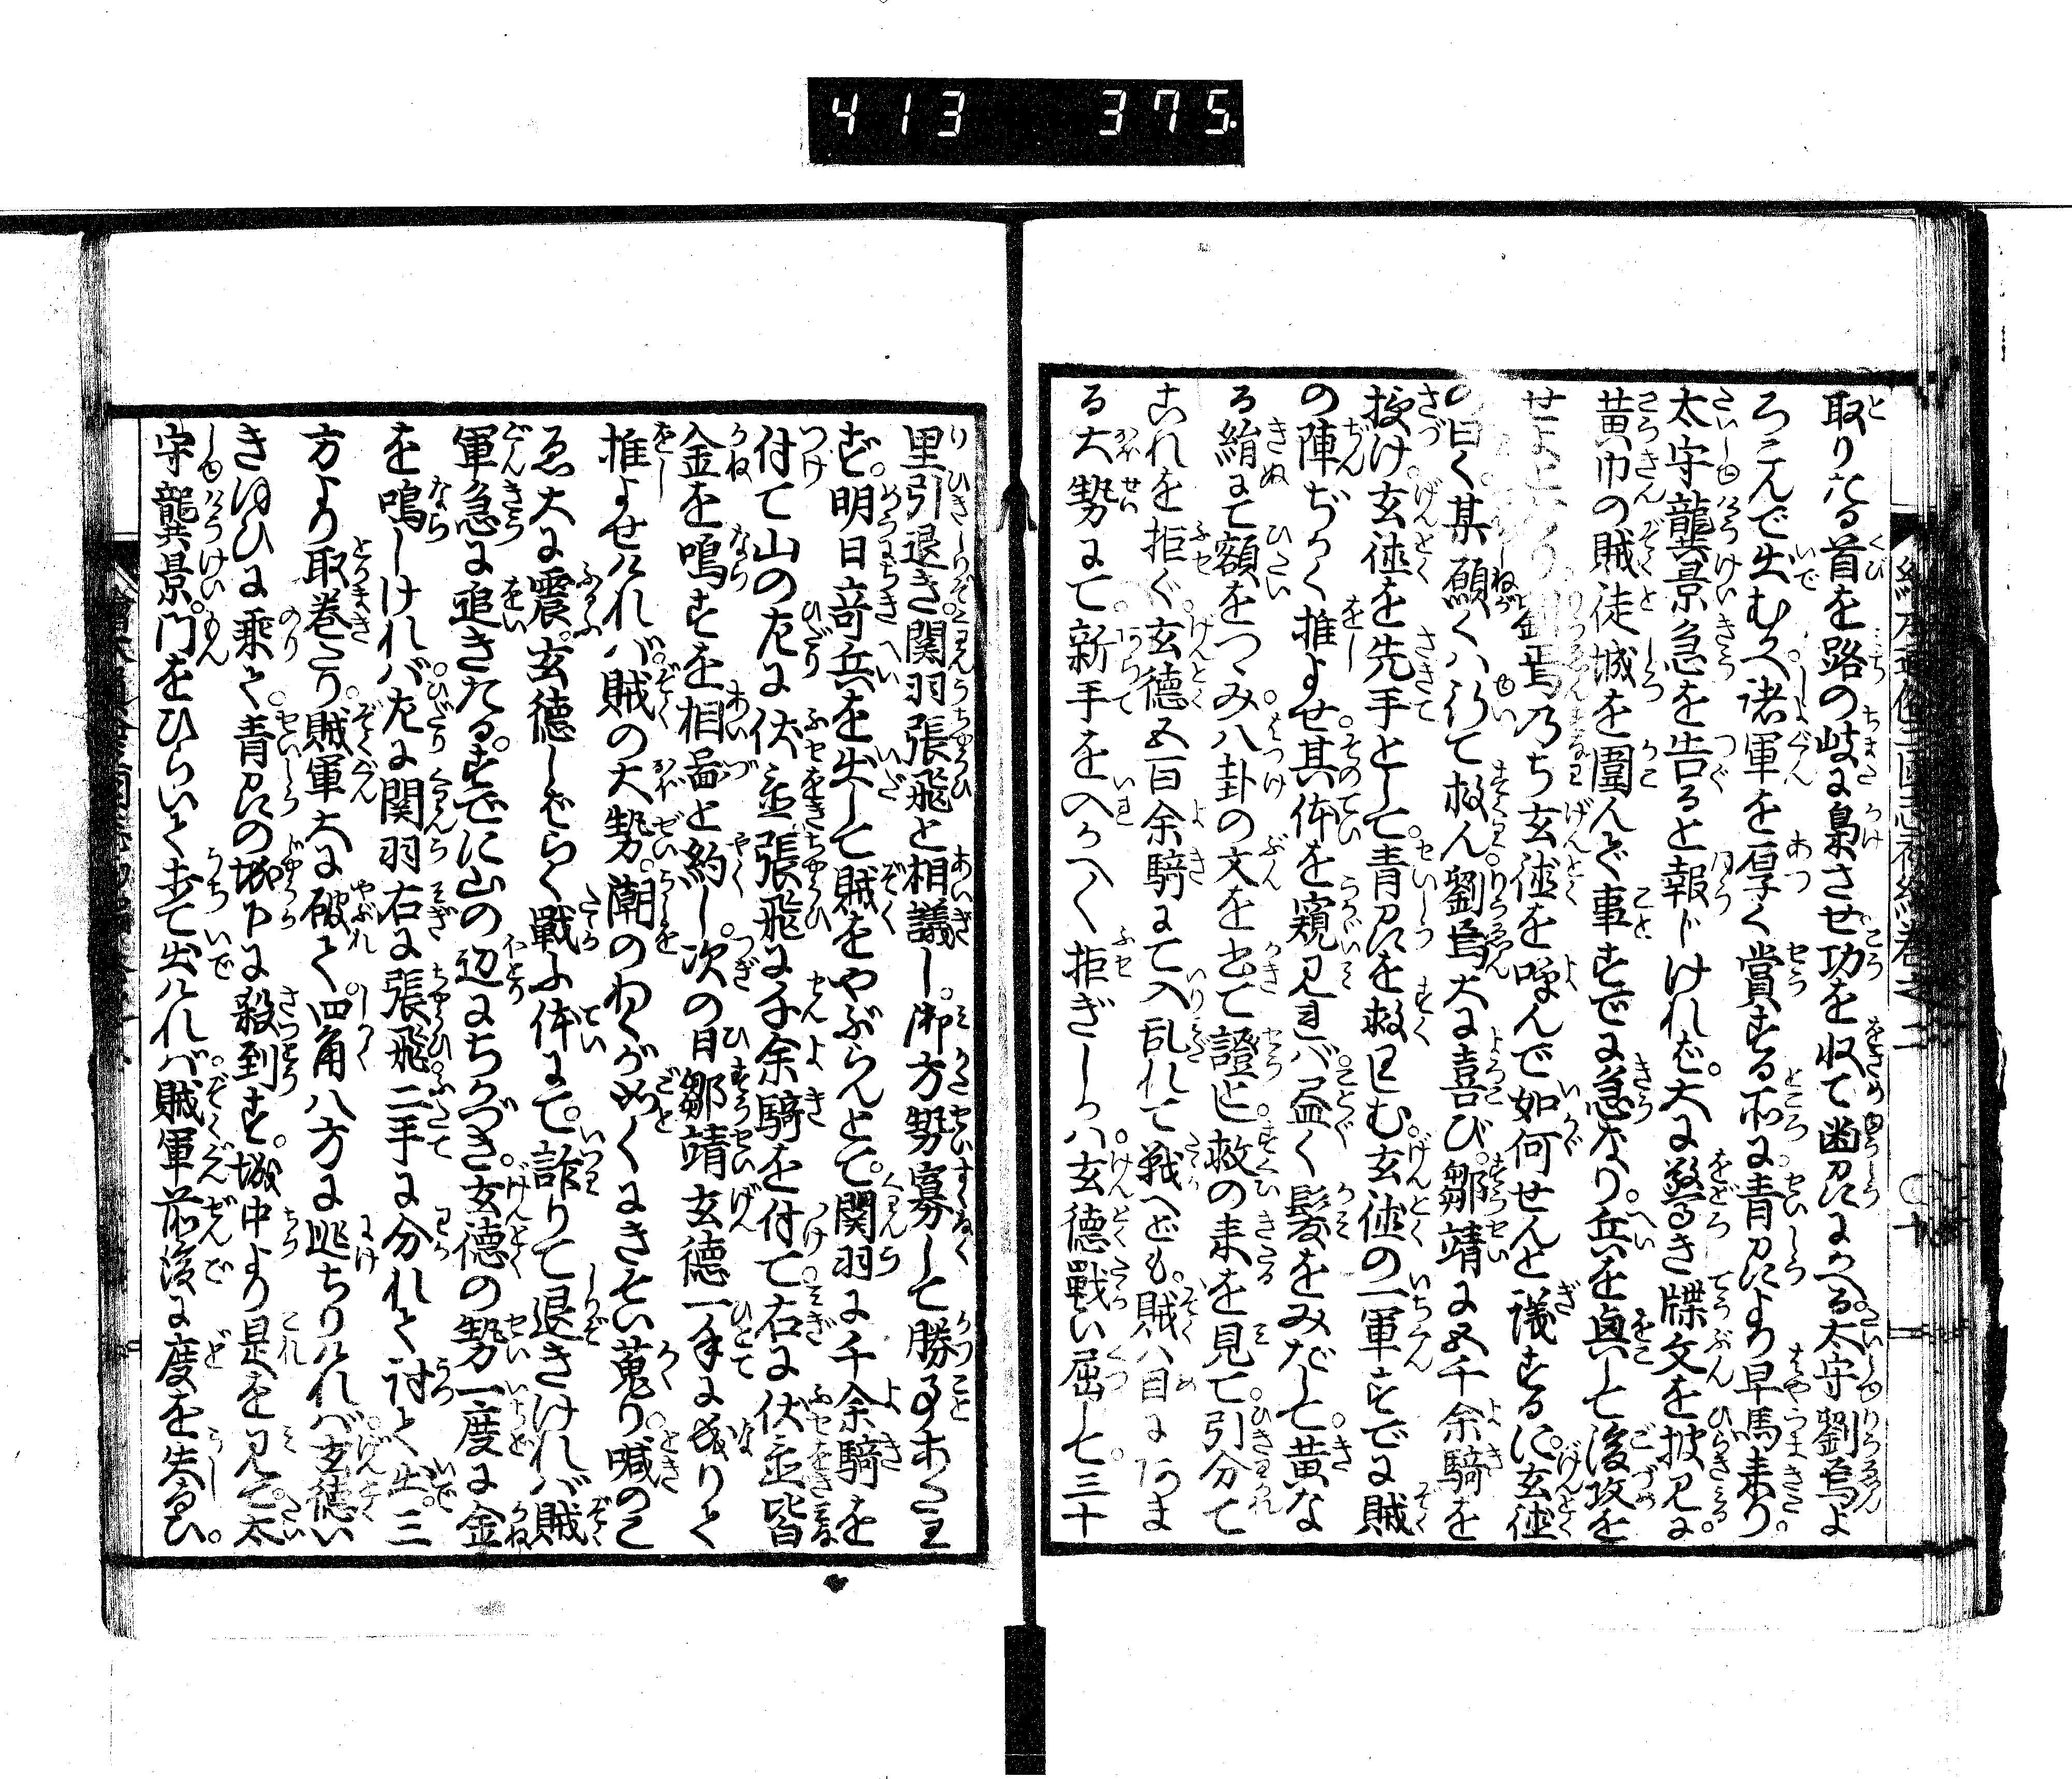 413 375
取りたる首を路の岐に梟させ功を収て凾州にかへる。太守劉焉よ
ろこんで出むかへ諸軍を厚く賞する所に青州より早馬来り。
太守龔景急を告ると報じければ。大に驚き牒文を披見に。
黄巾の賊徒城を囲んで事すでに急なり。兵を興して後攻を
せよと 劉焉乃ち玄徳を喚んで如何せんと議するに。玄徳
の曰く某願くハ行て救ん劉焉大に喜び。鄒靖に五千余騎を
授け。玄徳を先手として。青州を救はしむ。玄徳の一軍すでに賊
の陣ぢかく推よせ。其体を窺見れバ。尽く髪をみだして。黄な
る絹にて額をつゝみ。八卦の文を書て證とし。救の来を見て。引分て
これを拒ぐ。玄徳五百余騎にて入乱れて戦へども。賊ハ目にあま
る大勢にて。新手を入かへ〱拒ぎしかハ。玄徳戦い屈して。三十
里引退き。関羽張飛と相議し。御方勢寡して勝事あたは
ず。明日奇兵を出して賊をやぶらんとて。関羽に千余騎を
付て山の左に伏並。張飛に千余騎を付て。右に伏並。皆
金を鳴すを相図と約し。次の日鄒靖玄徳一手に成りて
推よせけれバ。賊の大勢。潮のわくが如くにきそい蒐り。喊のこ
ゑ大に震。玄徳しばらく戦ふ体にて。詐りて退きけれバ賊
軍急に追きたる。すでに山の辺にちかづき。玄徳の勢一度に金
を鳴しけれバ。左に関羽右に張飛。二手に分れて討て出。三
方より取巻たり。賊軍大に破て。四角八方に逃ちりけれバ。玄徳い
きほひに乗て。青州の城下に殺到す。城中より是を見て。太
守龔景。門をひらいて出て出けれバ。賊軍前後に度を失ひ。